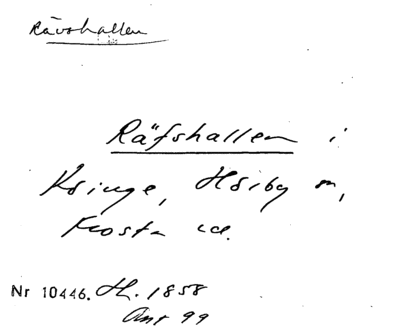 Rävshallen
Räfshallen i
Kringe, Höiby m,
Frosta
Nr 10446. H. 1858
Ant 99